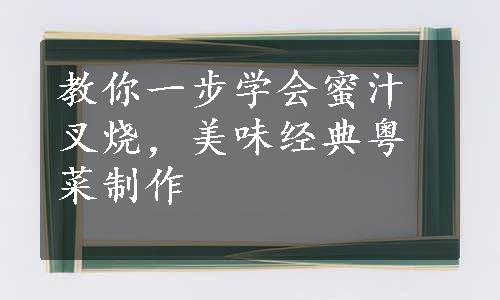 教你一步学会蜜汁
叉烧，美味经典粤
菜制作